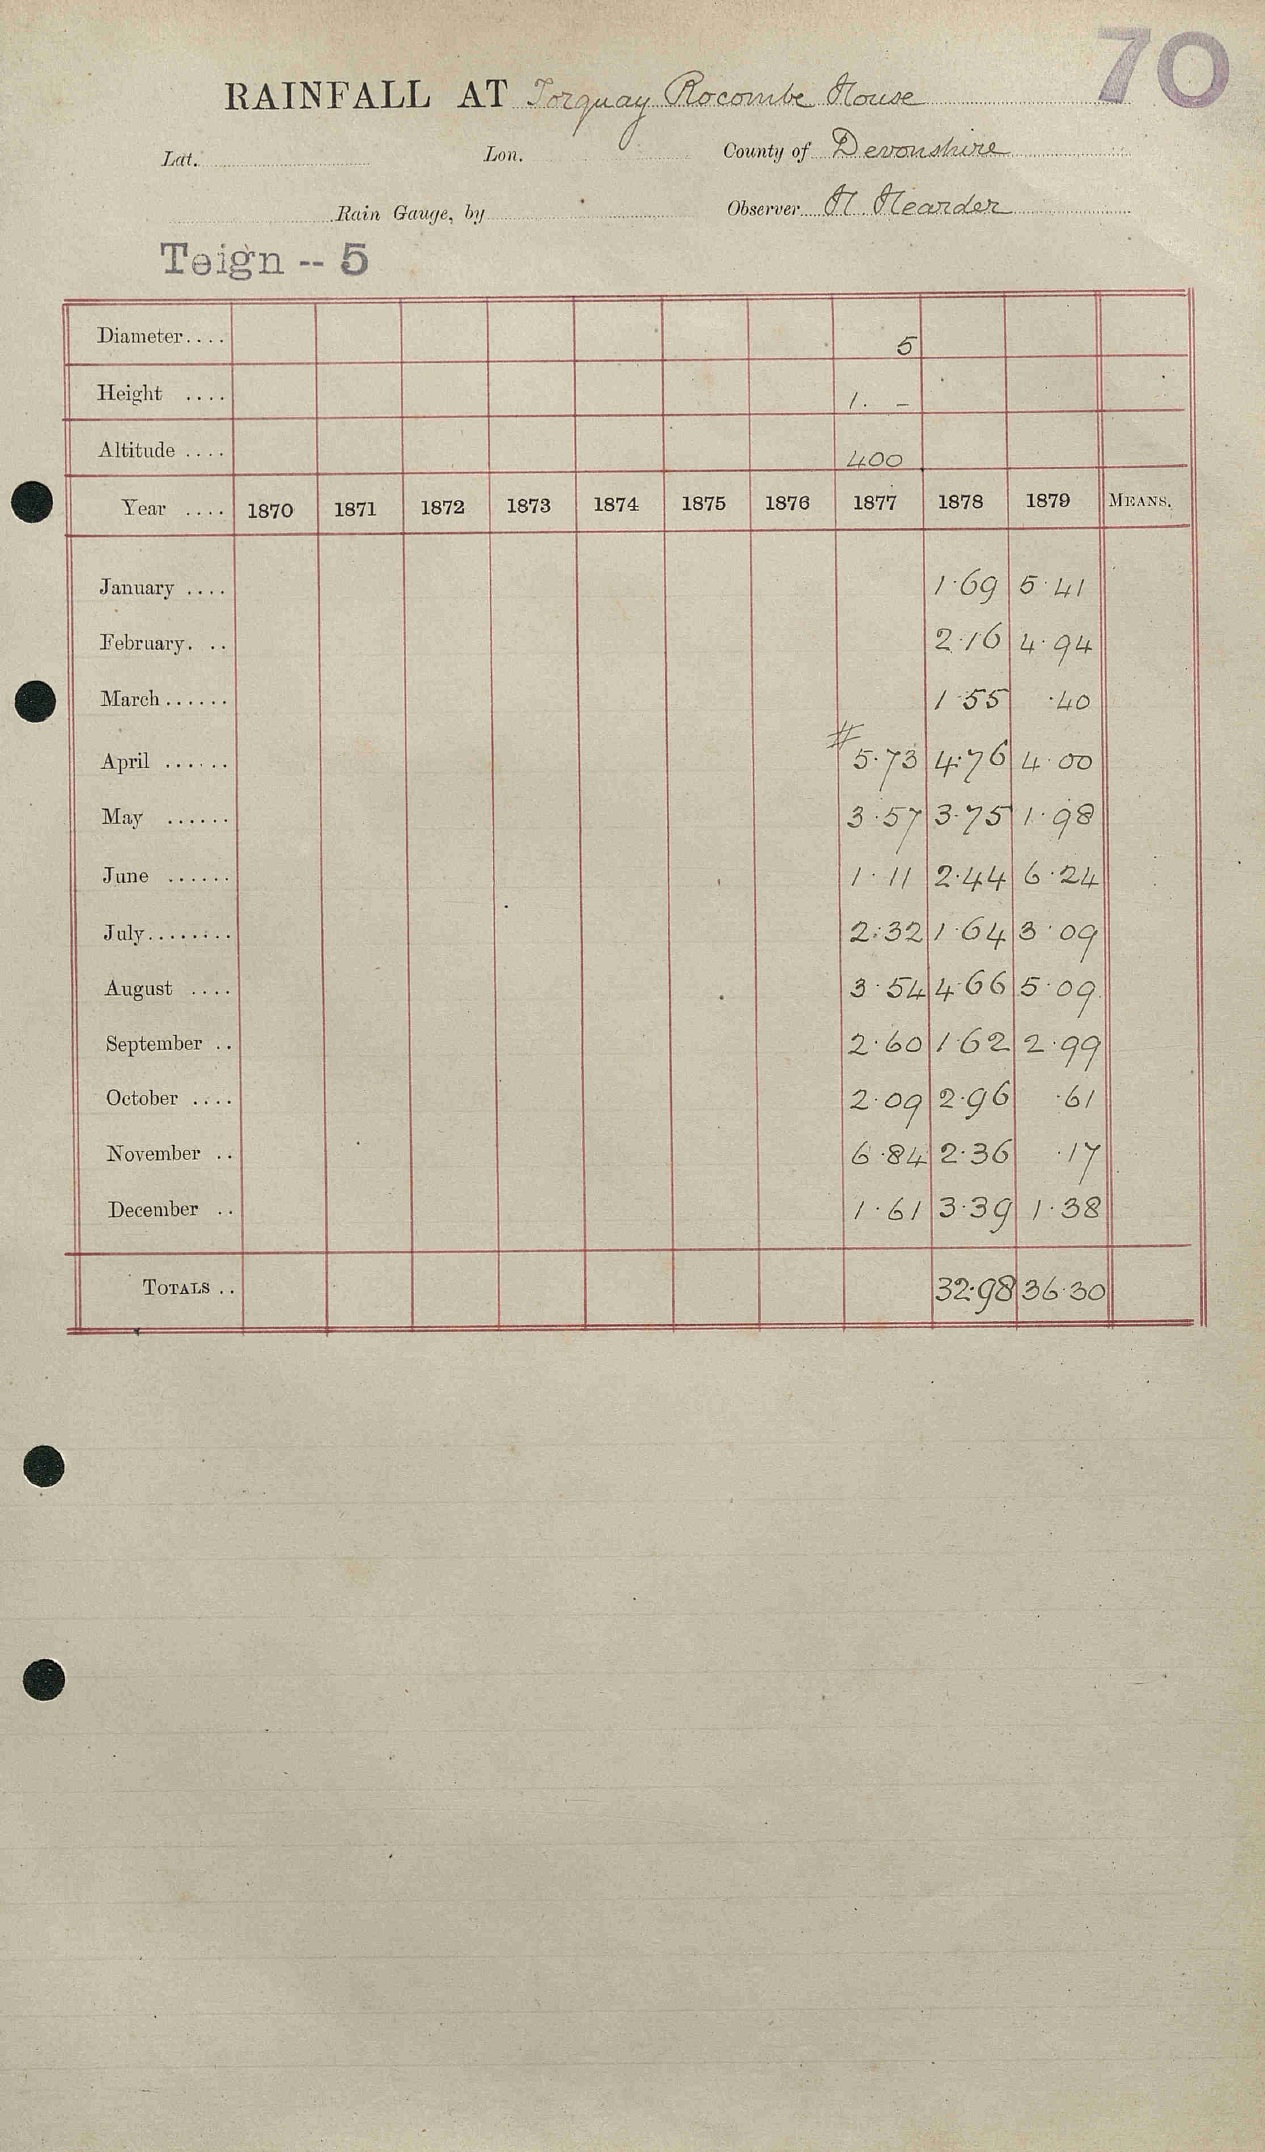 70
RAINFALL AT Torquay Rocombe House
Lat. Lon. County of Devonshire
Rain Gauge, by Observer H. Hearder
Teign -- 5
Diameter.... 5
Height .... 1. –
Altitude .... 400
Year .... 1870 1871 1872 1873 1874 1875 1876 1877 1878 1879 MEANS.
January .... 1·69 5·41
February. .. 2·16 4·94
March...... 1·55 ·40
April ...... # 5·73 4·76 4·00
May ...... 3·57 3·75 1·98
June ...... 1·11 2·44 6·24
July........ 2·32 1·64 3·09
August .... 3·54 4·66 5·09
September .. 2·60 1·62 2·99
October .... 2·09 2·96 ·61
November .. 6·84 2·36 ·17
December .. 1·61 3·39 1·38
TOTALS .. 32·98 36·30